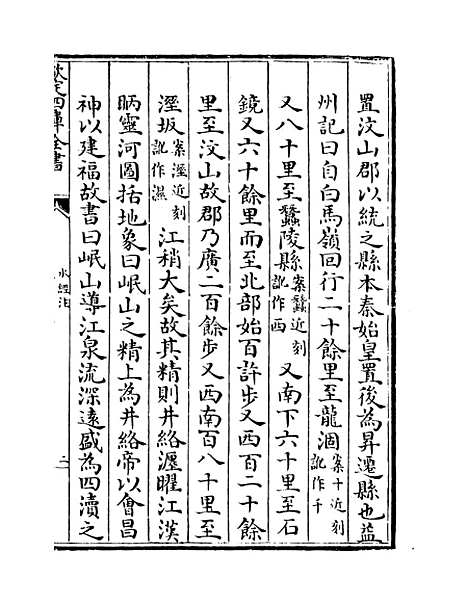 置汶山郡以統之縣本秦始皇置後為昇遷縣也益
州記曰自白馬嶺回行二十餘里至龍涸案十近刻訛作千
又八十里至蠶陵縣案蠶近刻訛作西又南下六十里至石
鏡又六十餘里而至北部始百許步又西百二十餘
里至汶山故郡乃廣二百餘步又西南百八十里至
溼坂案溼近刻訛作濕江稍大矣故其精則井絡瀍曜江漢
昞靈河圖括地象曰岷山之精上為井絡帝以會昌
神以建福故書曰岷山導江泉流深遠盛為四瀆之
欽定四庫全書
水經注
二